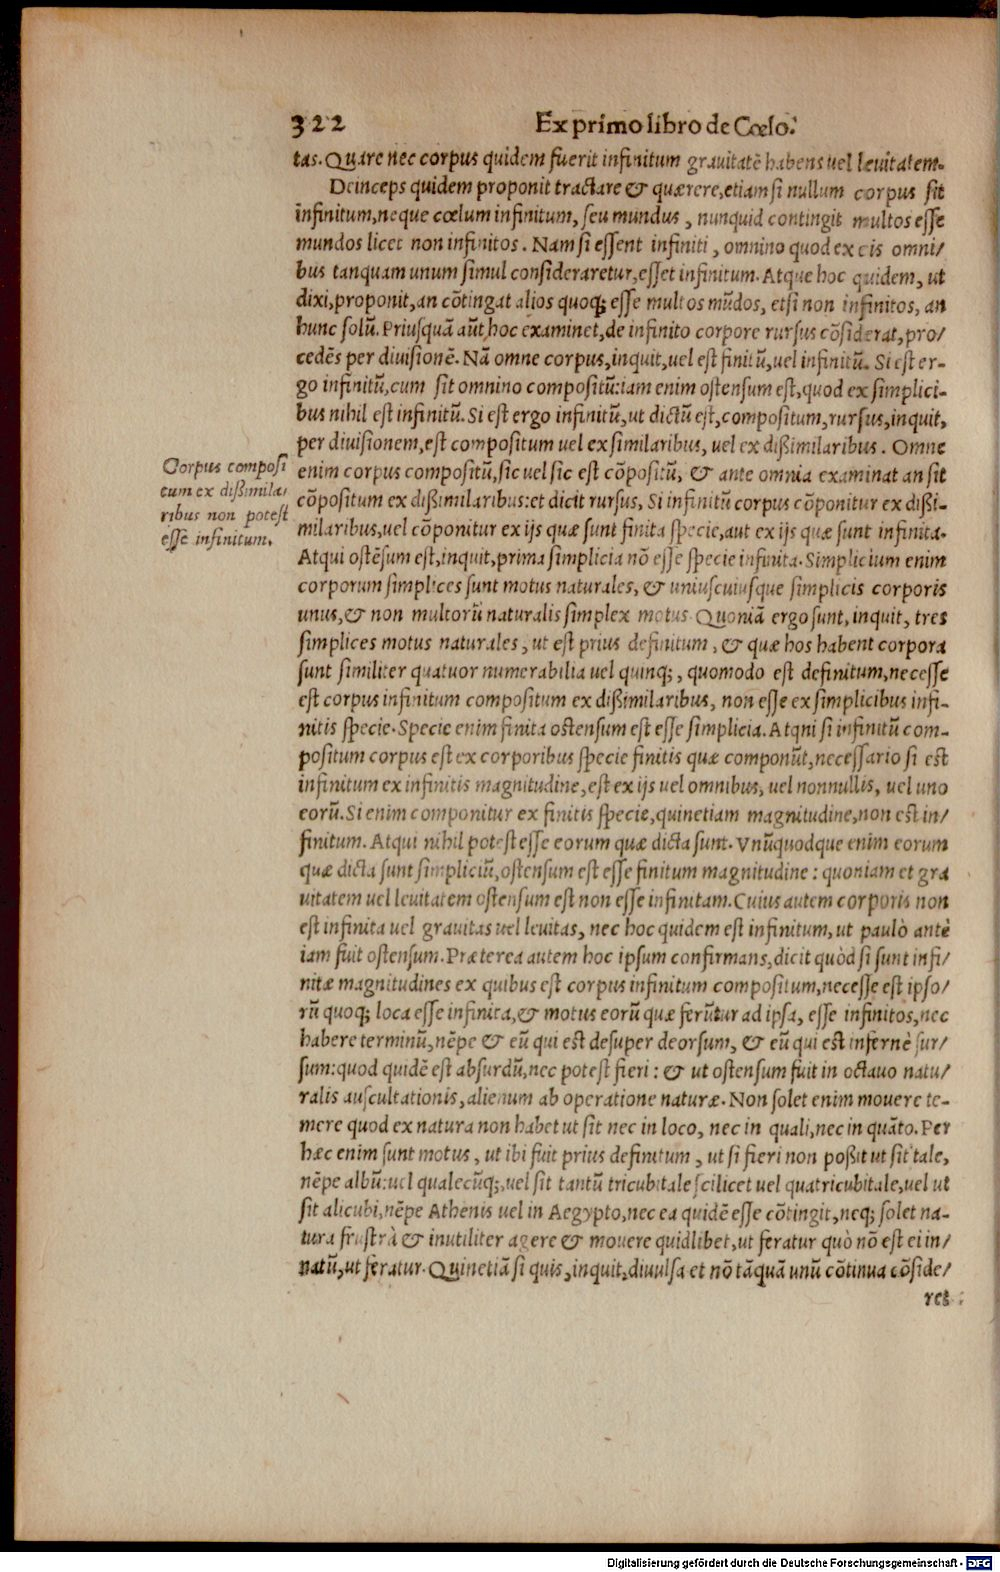 322 Ex primo libro de Cœlo.
tas. Quare nec corpus quidem fuerit infinitum grauitatē habens uel leuitatem.
Deinceps quidem proponit tractare & quærere, etiam si nullum corpus sit
infinitum, neque cœlum infinitum, seu mundus, nunquid contingit multos esse
mundos licet non infinitos. Nam si essent infiniti, omnino quod ex eis omni/
bus tanquam unum simul consideraretur, esset infinitum. Atque hoc quidem, ut
dixi, proponit, an cōtingat alios quoq; esse multos mūdos, etsi non infinitos, an
hunc solū. Priusquā aūt hoc examinet, de infinito corpore rursus cōsiderat, pro/
cedēs per diuisionē. Nā omne corpus, inquit, uel est finitū, uel infinitū. Si est er-
go infinitū, cum sit omnino compositū: iam enim ostensum est, quod ex simplici-
bus nihil est infinitū. Si est ergo infinitū, ut dictū est, compositum, rursus, inquit,
per diuisionem, est compositum uel ex similaribus, uel ex dißimilaribus. Omne
enim corpus compositū, sic uel sic est cōpositū, & ante omnia examinat an sit
cōpositum ex dißimilaribus: et dicit rursus, Si infinitū corpus cōponitur ex dißi-
milaribus, uel cōponitur ex ijs quæ sunt finita specie, aut ex ijs quæ sunt infinita.
Atqui ostēsum est, inquit, prima simplicia nō esse specie infinita. Simplicium enim
corporum simplices sunt motus naturales, & uniuscuiusque simplicis corporis
unus, & non multorū naturalis simplex motus. Quoniā ergo sunt, inquit, tres
simplices motus naturales, ut est prius definitum, & quæ hos habent corpora
sunt similiter quatuor numerabilia uel quinq;, quomodo est definitum, necesse
est corpus infinitum compositum ex dißimilaribus, non esse ex simplicibus infi-
nitis specie. Specie enim finita ostensum est esse simplicia. Atqni si infinitū com-
positum corpus est ex corporibus specie finitis quæ componūt, necessario si est
infinitum ex infinitis magnitudine, est ex ijs uel omnibus, uel nonnullis, uel uno
eorū. Si enim componitur ex finitis specie, quinetiam magnitudine, non est in/
finitum. Atqui nihil potest esse eorum quæ dicta sunt. Vnūquodque enim eorum
quæ dicta sunt simpliciū, ostensum est esse finitum magnitudine: quoniam et gra
uitatem uel leuitatem ostensum est non esse infinitam. Cuius autem corporis non
est infinita uel grauitas uel leuitas, nec hoc quidem est infinitum, ut paulò antè
iam fuit ostensum. Præterea autem hoc ipsum confirmans, dicit quòd si sunt infi/
nitæ magnitudines ex quibus est corpus infinitum compositum, necesse est ipso/
rū quoq; loca esse infinita, & motus eorū quæ ferūtur ad ipsa, esse infinitos, nec
habere terminū, nēpe & eū qui est desuper deorsum, & eū qui est infernè sur/
sum: quod quidē est absurdū, nec potest fieri: & ut ostensum fuit in octauo natu/
ralis auscultationis, alienum ab operatione naturæ. Non solet enim mouere te-
mere quod ex natura non habet ut sit nec in loco, nec in quali, nec in quāto. Per
hæc enim sunt motus, ut ibi fuit prius definitum, ut si fieri non poßit ut sit tale,
nēpe albū: uel qualecūq;, uel sit tantū tricubitale scilicet uel quatricubitale, uel ut
sit alicubi, nēpe Athenis uel in Aegypto, nec ea quidē esse cōtingit, neq; solet na-
tura frustrà & inutiliter agere & mouere quidlibet, ut feratur quò nō est ei in/
natū, ut feratur. Quinetiā si quis, inquit, diuulsa et nō tāquā unū cōtinua cōside/
ret
Corpus composi
tum ex dißimila/
ribus non potest
esse infinitum.
Digitalisierung gefördert durch die Deutsche Forschungsgemeinschaft - DFG